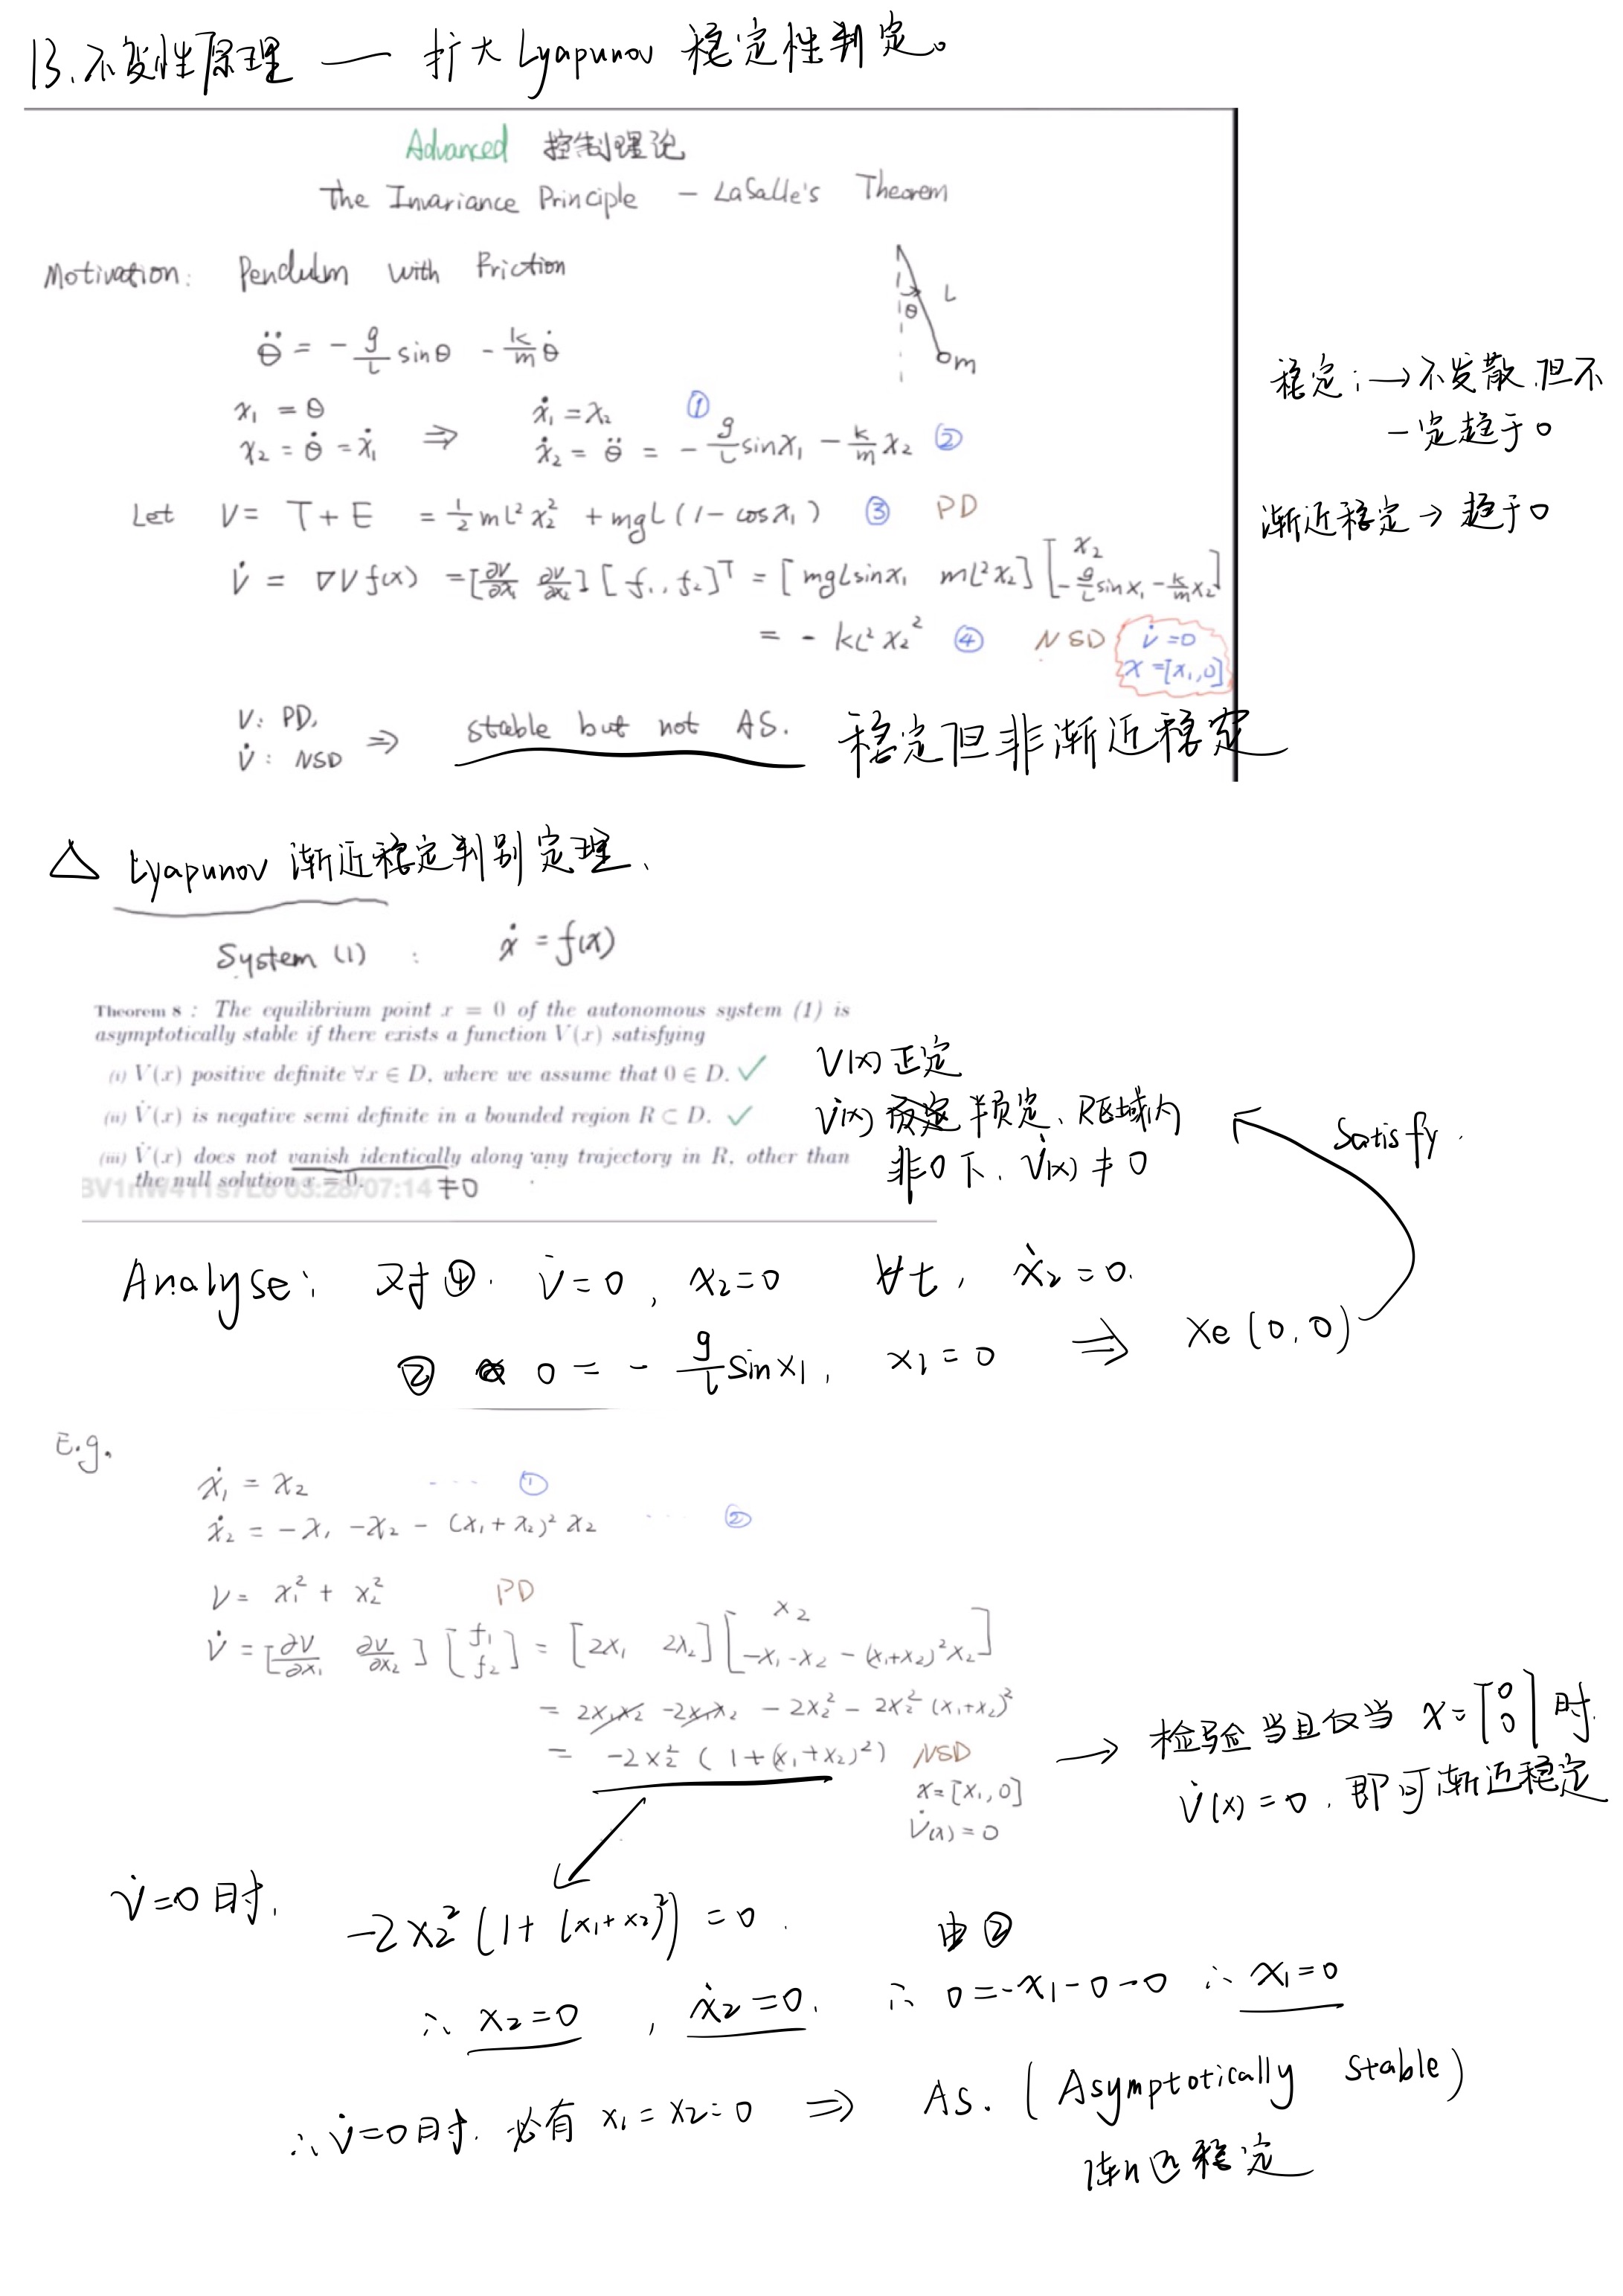 13.不变性原理 — 扩大 Lyapunov 稳定性判定。
Advanced 控制理论
The Invariance Principle — LaSalle's Theorem
Motivation: Pendulm with Friction
θ̈ = - g/L sinθ - k/m θ̇
L
θ
m
x₁ = θ ẋ₁ = x₂ ①
x₂ = θ̇ = ẋ₁ ⇒ ẋ₂ = θ̈ = - g/L sinx₁ - k/m x₂ ②
稳定: → 不发散,但不
一定趋于0
Let V = T + E = ½ mL² x₂² + mgL(1 - cosx₁) ③ PD
渐近稳定 → 趋于0
V̇ = ∇V f(x) = [∂V/∂x₁ ∂V/∂x₂] [f₁, f₂]ᵀ = [mgLsinx₁ mL²x₂] [x₂ ; -g/L sinx₁ - k/m x₂]
= - kL² x₂² ④ NSD V̇ = 0
x = [x₁, 0]
V: PD,
V̇: NSD ⇒ stable but not AS. 稳定但非渐近稳定
△ Lyapunov 渐近稳定判别定理、
System (1) : ẋ = f(x)
Theorem 8 : The equilibrium point x = 0 of the autonomous system (1) is
asymptotically stable if there exists a function V(x) satisfying
(i) V(x) positive definite ∀x ∈ D, where we assume that 0 ∈ D. ✓
(ii) V̇(x) is negative semi definite in a bounded region R ⊂ D. ✓
(iii) V̇(x) does not vanish identically along any trajectory in R, other than
the null solution x = 0. ≠0
V(x) 正定
V̇(x) 半负定、R区域内
非0下、V̇(x) ≠ 0
Satisfy.
Analyse: 对④. V̇=0, x₂=0 ∀t, ẋ₂=0.
② 0 = - g/L sinx₁, x₁ = 0 ⇒ Xe (0,0)
E.g.
ẋ₁ = x₂ ··· ①
ẋ₂ = -x₁ -x₂ - (x₁+x₂)² x₂ ··· ②
V = x₁² + x₂² PD
V̇ = [∂V/∂x₁ ∂V/∂x₂] [f₁ ; f₂] = [2x₁ 2x₂] [x₂ ; -x₁-x₂ - (x₁+x₂)²x₂]
= 2x₁x₂ -2x₁x₂ - 2x₂² - 2x₂² (x₁+x₂)²
= -2x₂² (1+(x₁+x₂)²) NSD
x=[x₁,0]
V̇(x)=0
→ 检验当且仅当 x=[0 ; 0]时.
V̇(x)=0. 即可渐近稳定
V̇=0时.
-2x₂²(1+(x₁+x₂)²) = 0.
∴ x₂=0 , ẋ₂=0.
由②
∴ 0=-x₁-0-0 ∴ x₁=0
∴ V̇=0时. 必有 x₁=x₂=0 ⇒ AS. (Asymptotically stable)
渐近稳定